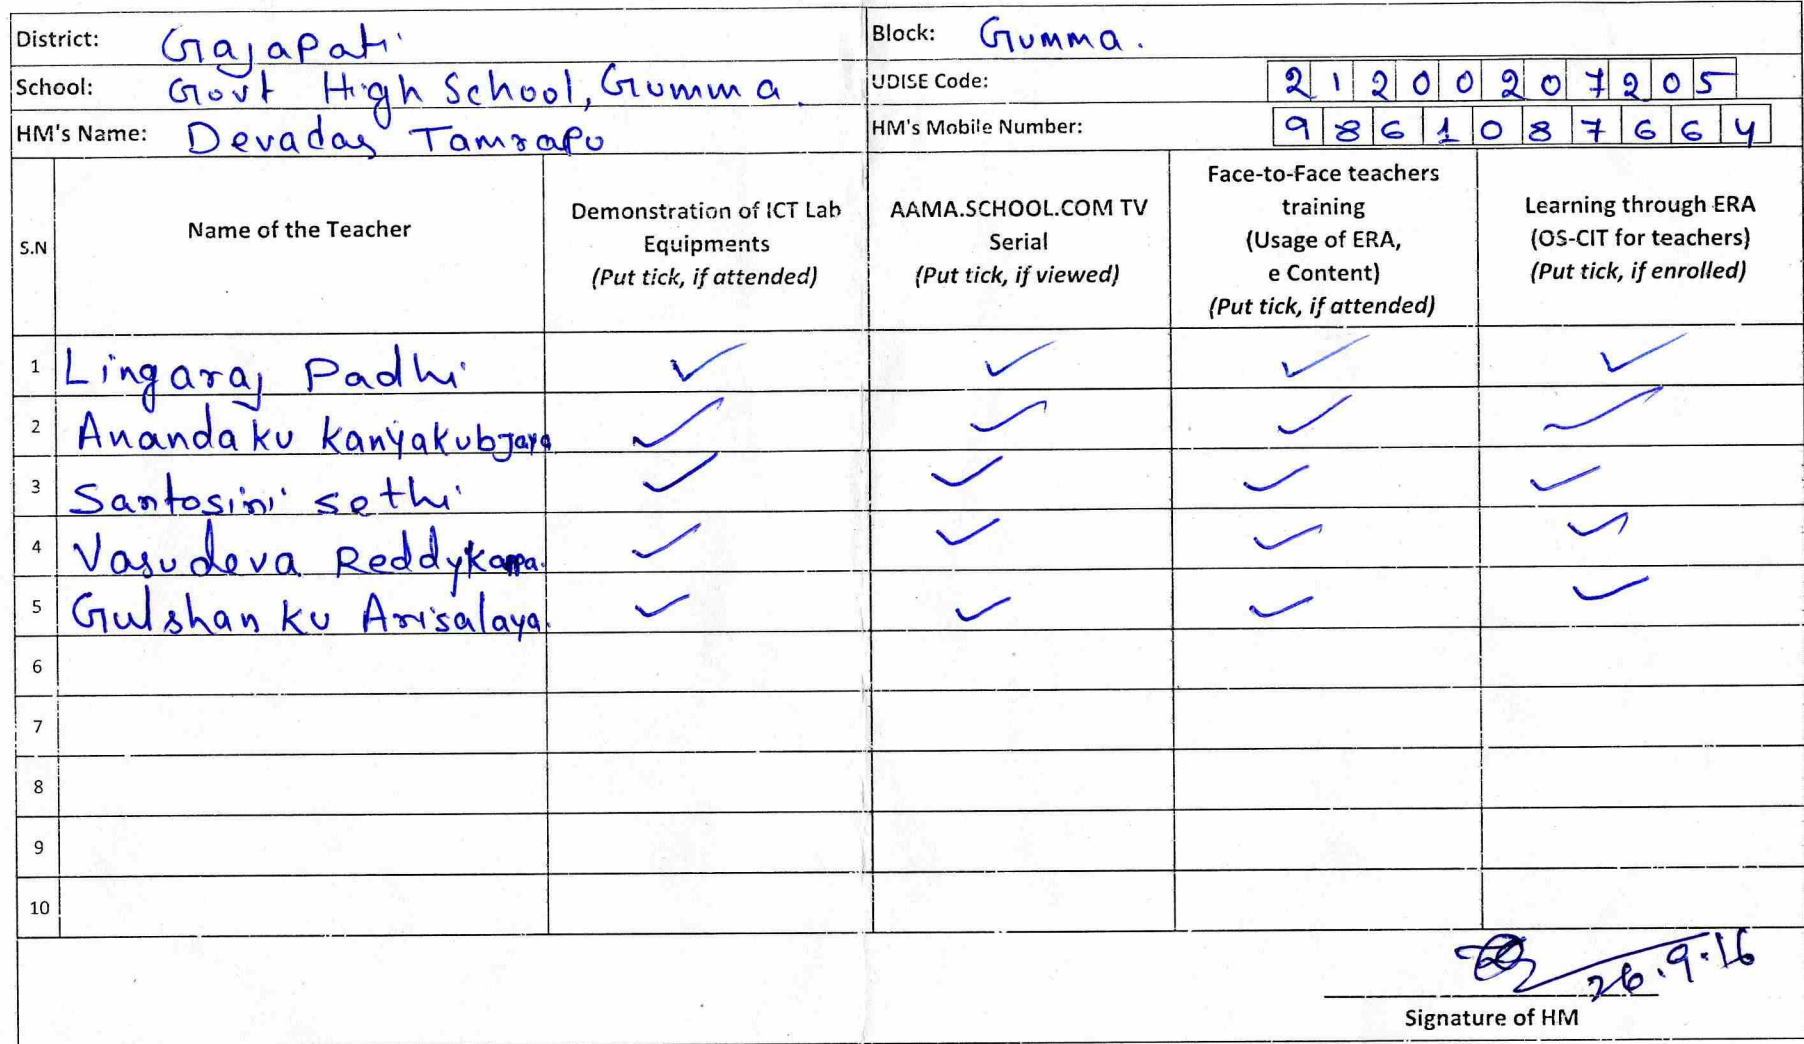 District: Gajapati
Block: Gumma.
School: Govt High School, Gumma.
UDISE Code: 21200207205
HM's Name: Devadas Tamrapu
HM's Mobile Number: 9861087664
S.N
Name of the Teacher
Demonstration of ICT Lab
Equipments
(Put tick, if attended)
AAMA.SCHOOL.COM TV
Serial
(Put tick, if viewed)
Face-to-Face teachers
training
(Usage of ERA,
e Content)
(Put tick, if attended)
Learning through ERA
(OS-CIT for teachers)
(Put tick, if enrolled)
1 Lingaraj Padhi ✓ ✓ ✓ ✓
2 Ananda ku Kanyakubjaya ✓ ✓ ✓ ✓
3 Santosini sethi ✓ ✓ ✓ ✓
4 Vasudeva Reddy ✓ ✓ ✓ ✓
5 Gulshan ku Arisalaya. ✓ ✓ ✓ ✓
6
7
8
9
10
26.9.16
Signature of HM